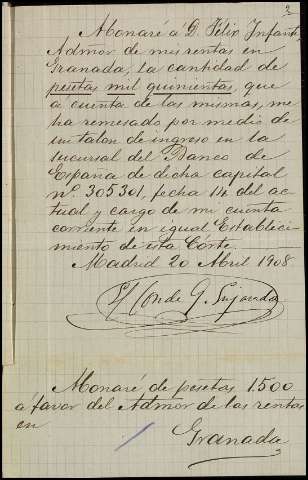 2
Monaré a D. Felix Infante,
Admor de mis rentas en
Granada, la cantidad de
pesetas mil quinientas, que
a cuenta de las mismas, me
ha remesado por medio de
un talon de ingreso en la
sucursal del Banco de
España de dicha capital
nº. 305301, fecha 14 del ac-
tual y cargo de mi cuenta
corriente en igual Estableci-
miento de esta Córte.
Madrid 20 Abril 1908
El Conde G.
Monaré de pesetas 1.500
a favor del Admor de las rentas
en
Granada